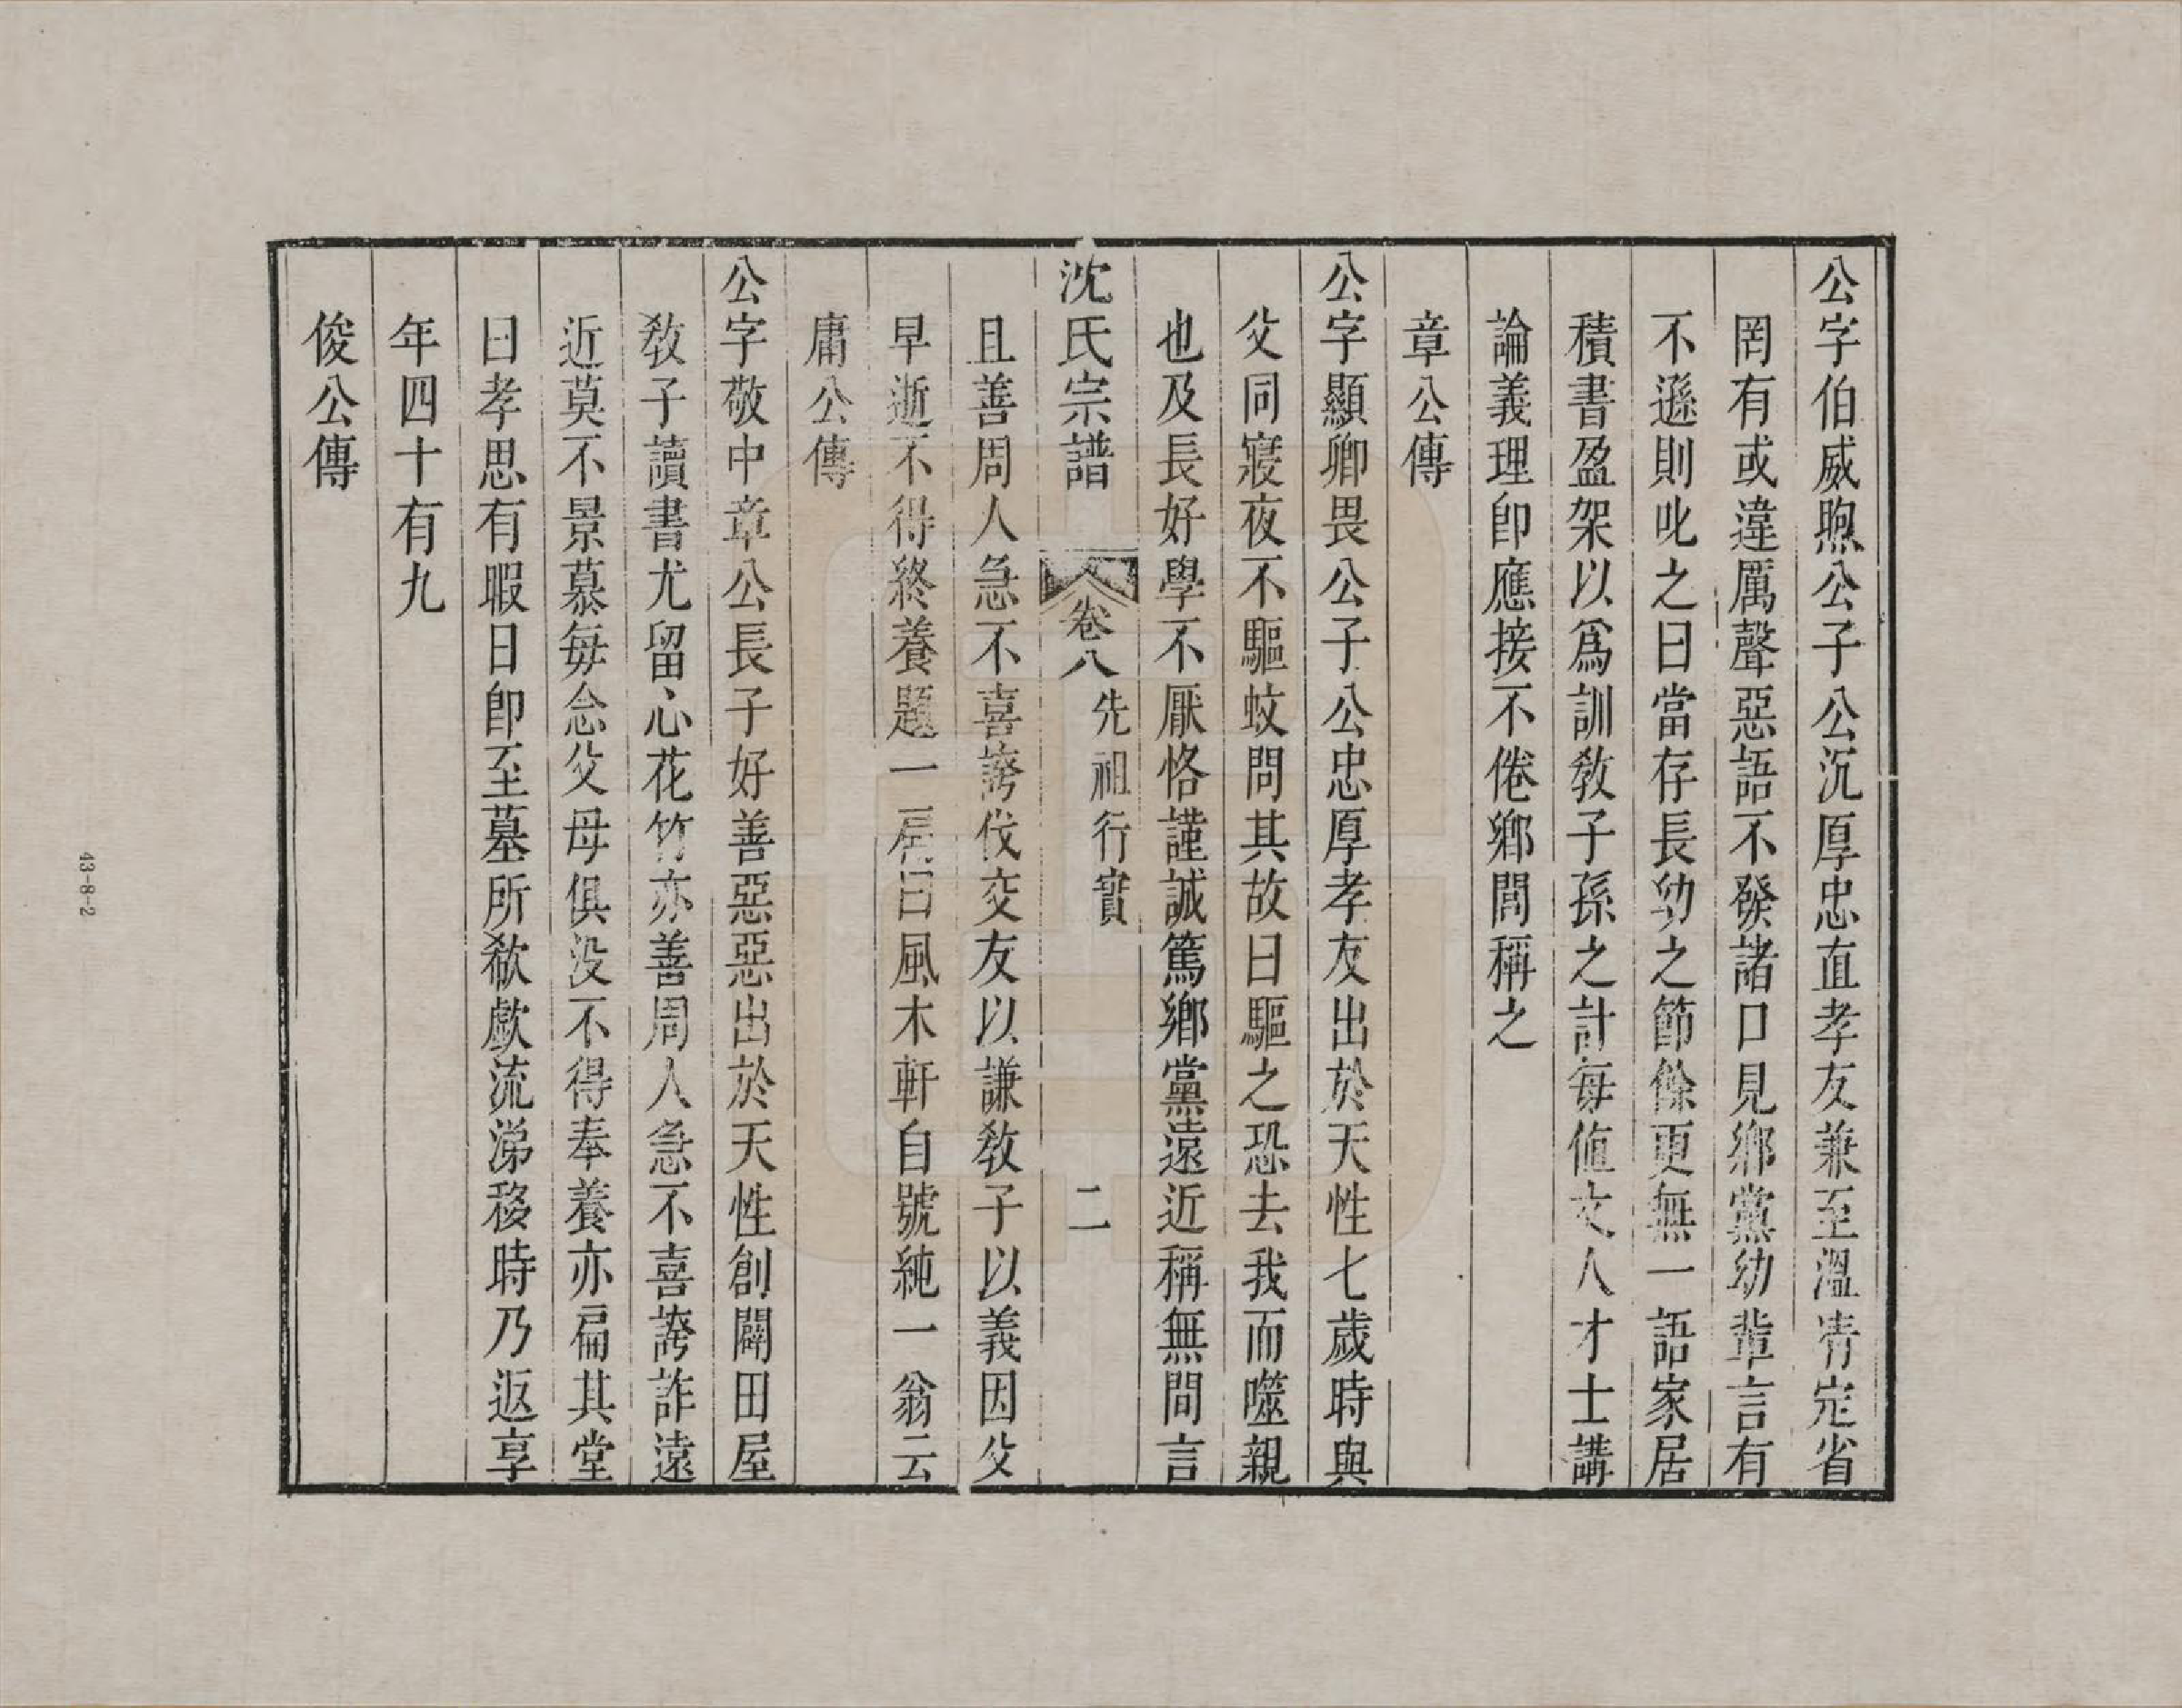 公字伯威煦公子公沉厚忠直孝友兼至溫凊定省
罔有或違厲聲惡語不發諸口見鄉黨幼輩言有
不遜則叱之曰當存長幼之節餘更無一語家居
積書盈架以爲訓敎子孫之計每值文人才士講
論義理卽應接不倦鄉閭稱之
章公傳
公字顯卿畏公子公忠厚孝友出於天性七歲時與
父同寢夜不驅蚊問其故曰驅之恐去我而噬親
也及長好學不厭恪謹誠篤鄉黨遠近稱無間言
沈氏宗譜 卷八 先祖行實 二
且善周人急不喜誇伐交友以謙敎子以義因父
早逝不得終養題一扁曰風木軒自號純一翁云
庸公傳
公字敬中章公長子好善惡惡出於天性創闢田屋
敎子讀書尤留心花竹亦善周人急不喜誇詐遠
近莫不景慕每念父母俱没不得奉養亦扁其堂
曰孝思有暇日卽至墓所欷歔流涕移時乃返享
年四十有九
俊公傳
43-8-2